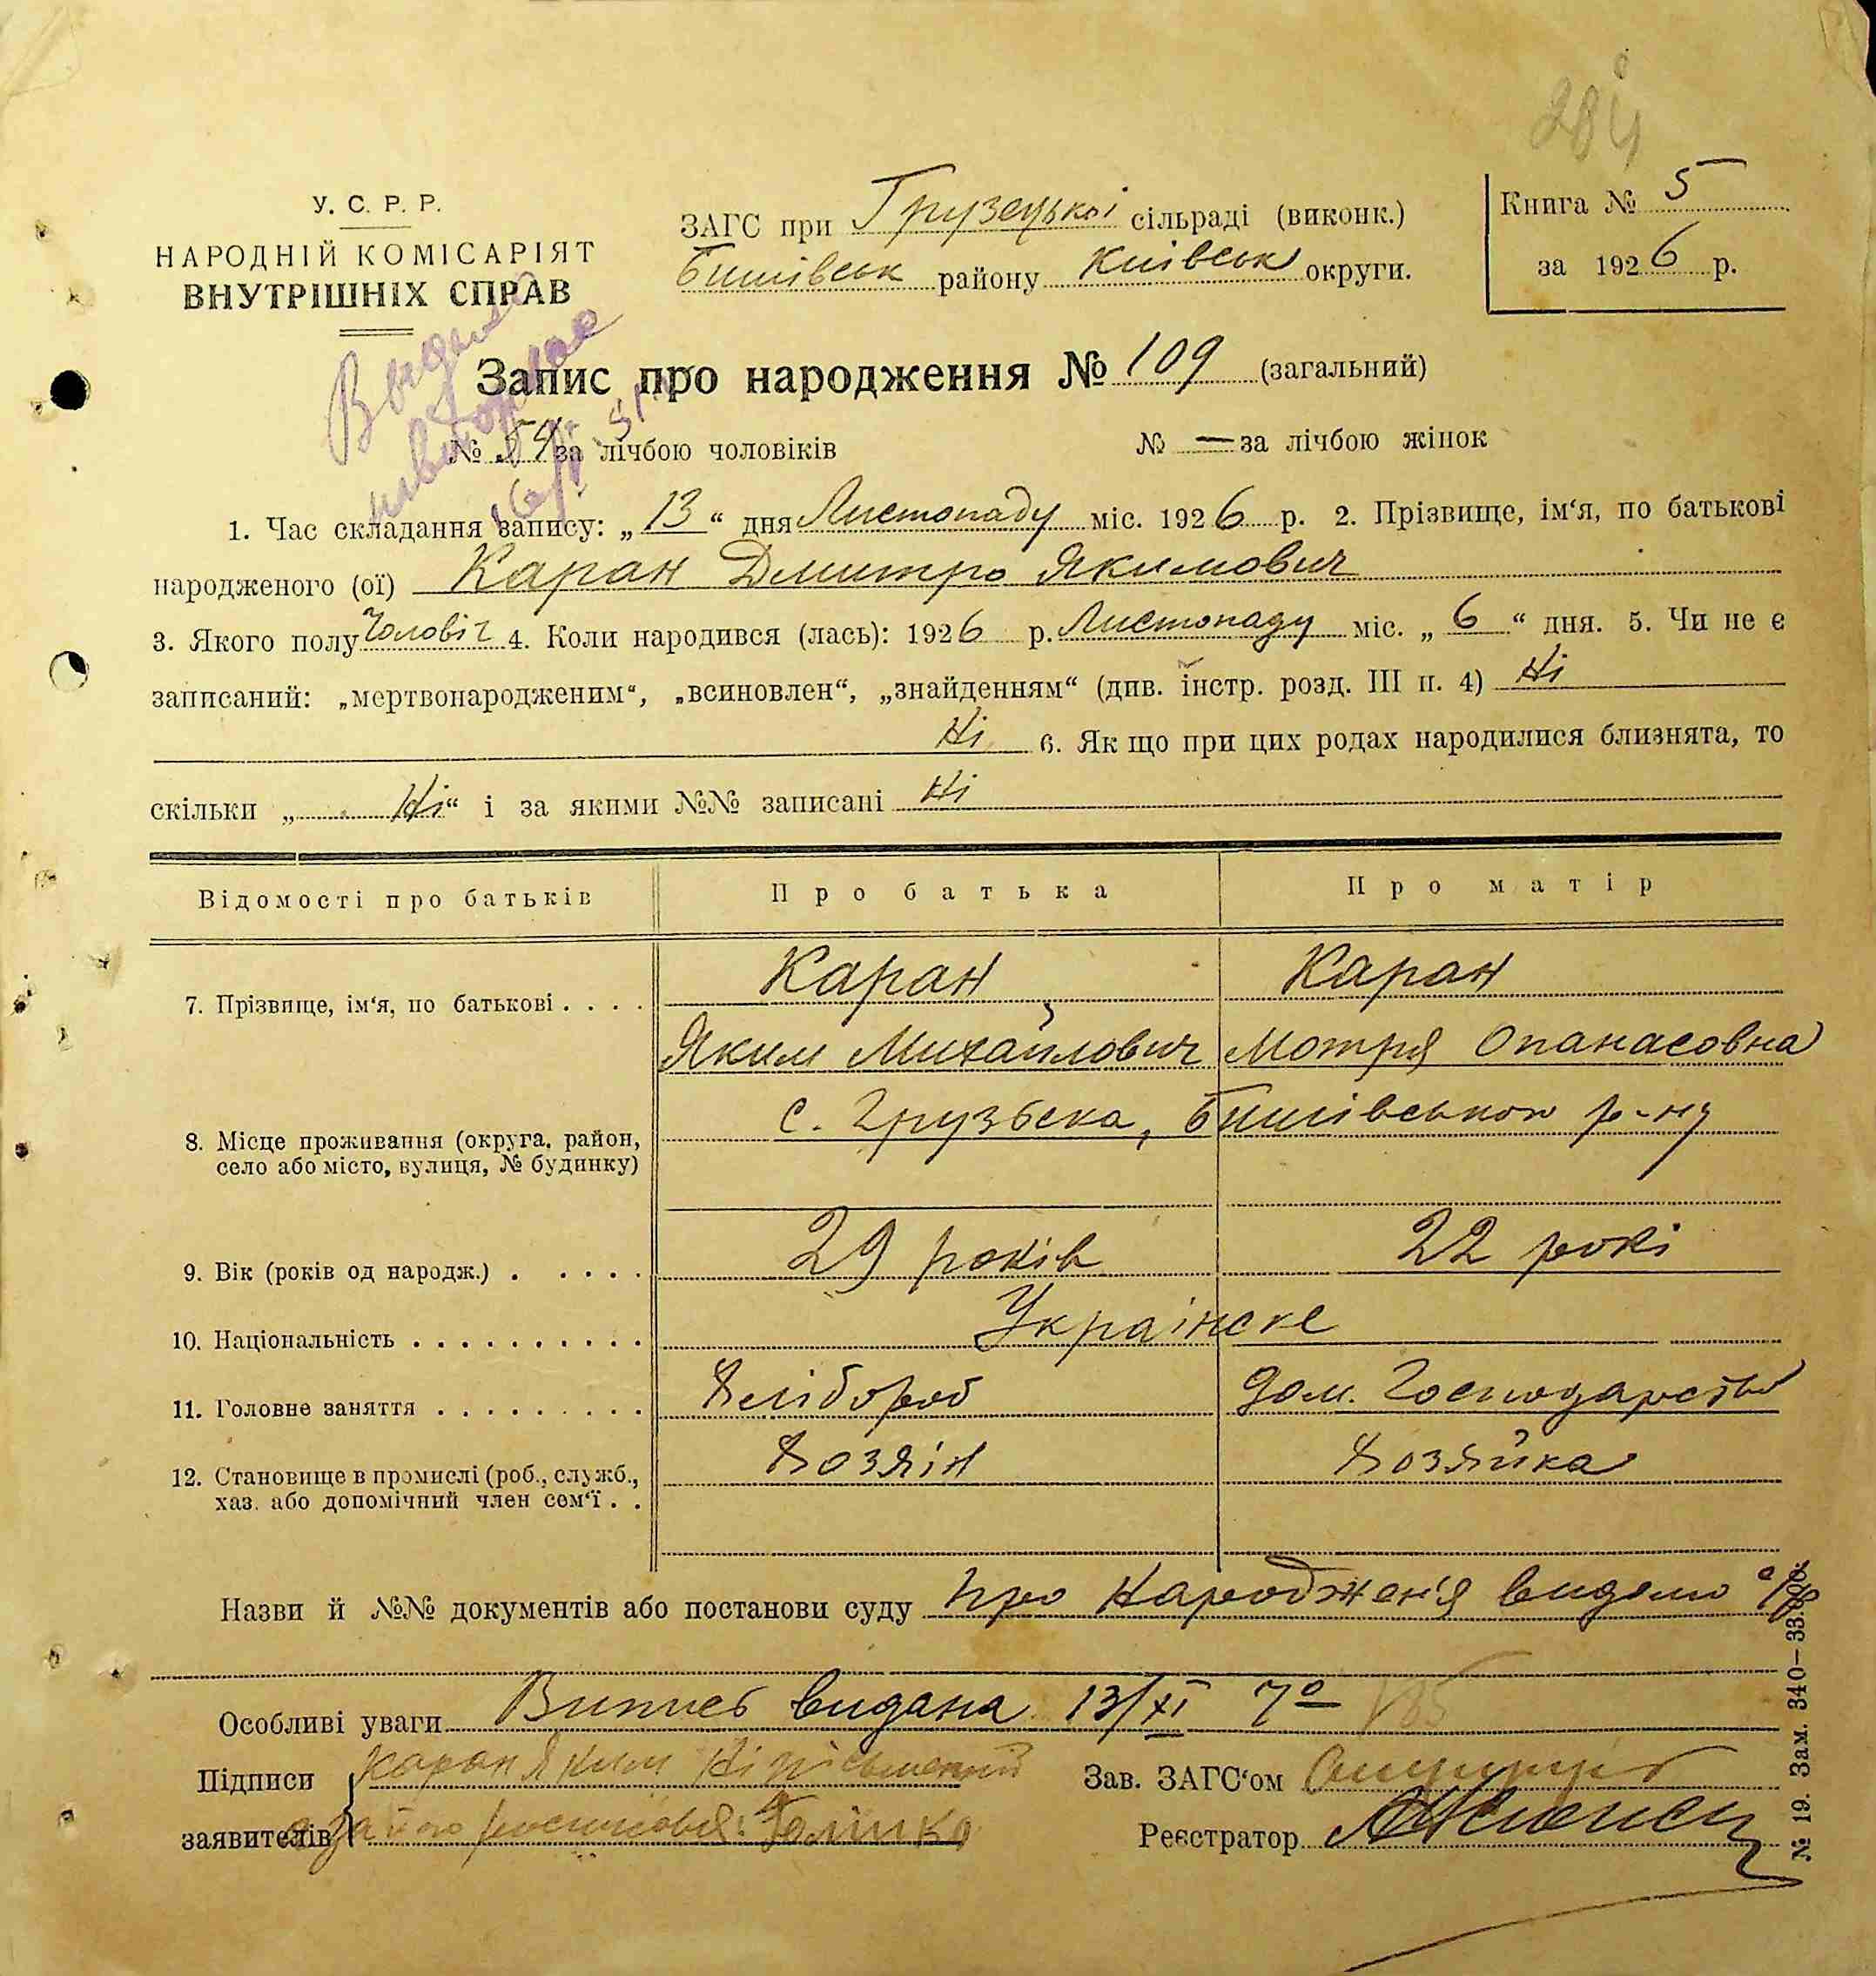 284
У. С. Р. Р.
НАРОДНІЙ КОМІСАРІЯТ
ВНУТРІШНІХ СПРАВ
ЗАГС при Грузецької сільраді (виконк.)
Бишівськ району Київськ округи.
Книга № 5
за 1926 р.
Запис про народження № 109 (загальний)
№ 54 за лічбою чоловіків № — за лічбою жінок
1. Час складання запису: „ 13 “ дня Листопаду міс. 1926 р. 2. Прізвище, ім‘я, по батькові
народженого (ої) Каран Дмитро Якимович
3. Якого полу Чоловіч 4. Коли народився (лась): 1926 р. Листопаду міс. „ 6 “ дня. 5. Чи не є
записаний: „мертвонародженим“, „всиновлен“, „знайденням“ (див. інстр. розд. III п. 4) Ні
Ні 6. Як що при цих родах народилися близнята, то
скільки „ Ні “ і за якими №№ записані Ні
Відомості про батьків Про батька Про матір
7. Прізвище, ім‘я, по батькові . . . . Каран Каран
Яким Михайлович Мотря Опанасовна
8. Місце проживання (округа, район, с. Грузьска, Бишівського р-ну
село або місто, вулиця, № будинку)
9. Вік (років од народж.) . . . . . 29 років 22 рокі
10. Національність . . . . . . . . . . Українске
11. Головне заняття . . . . . . . . . Хлібороб Дом. Господарство
12. Становище в промислі (роб., служб., Хозяін Хозяйка
хаз. або допомічний член сем‘ї . .
Назви й №№ документів або постанови суду про Народженія видано
Особливі уваги Випись видана 13/XI 7º
Підписи Каран Яким Зав. ЗАГС‘ом
заявителів Реєстратор
№ 19. Зам. 340—33.000.